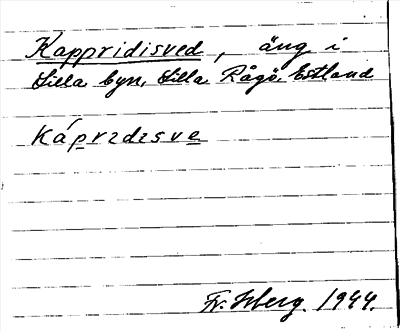 Kappridisved, äng i
Lilla byn, Lilla Rågö, Estland
Káprɪdɪsve
Fr. Isberg. 1944.